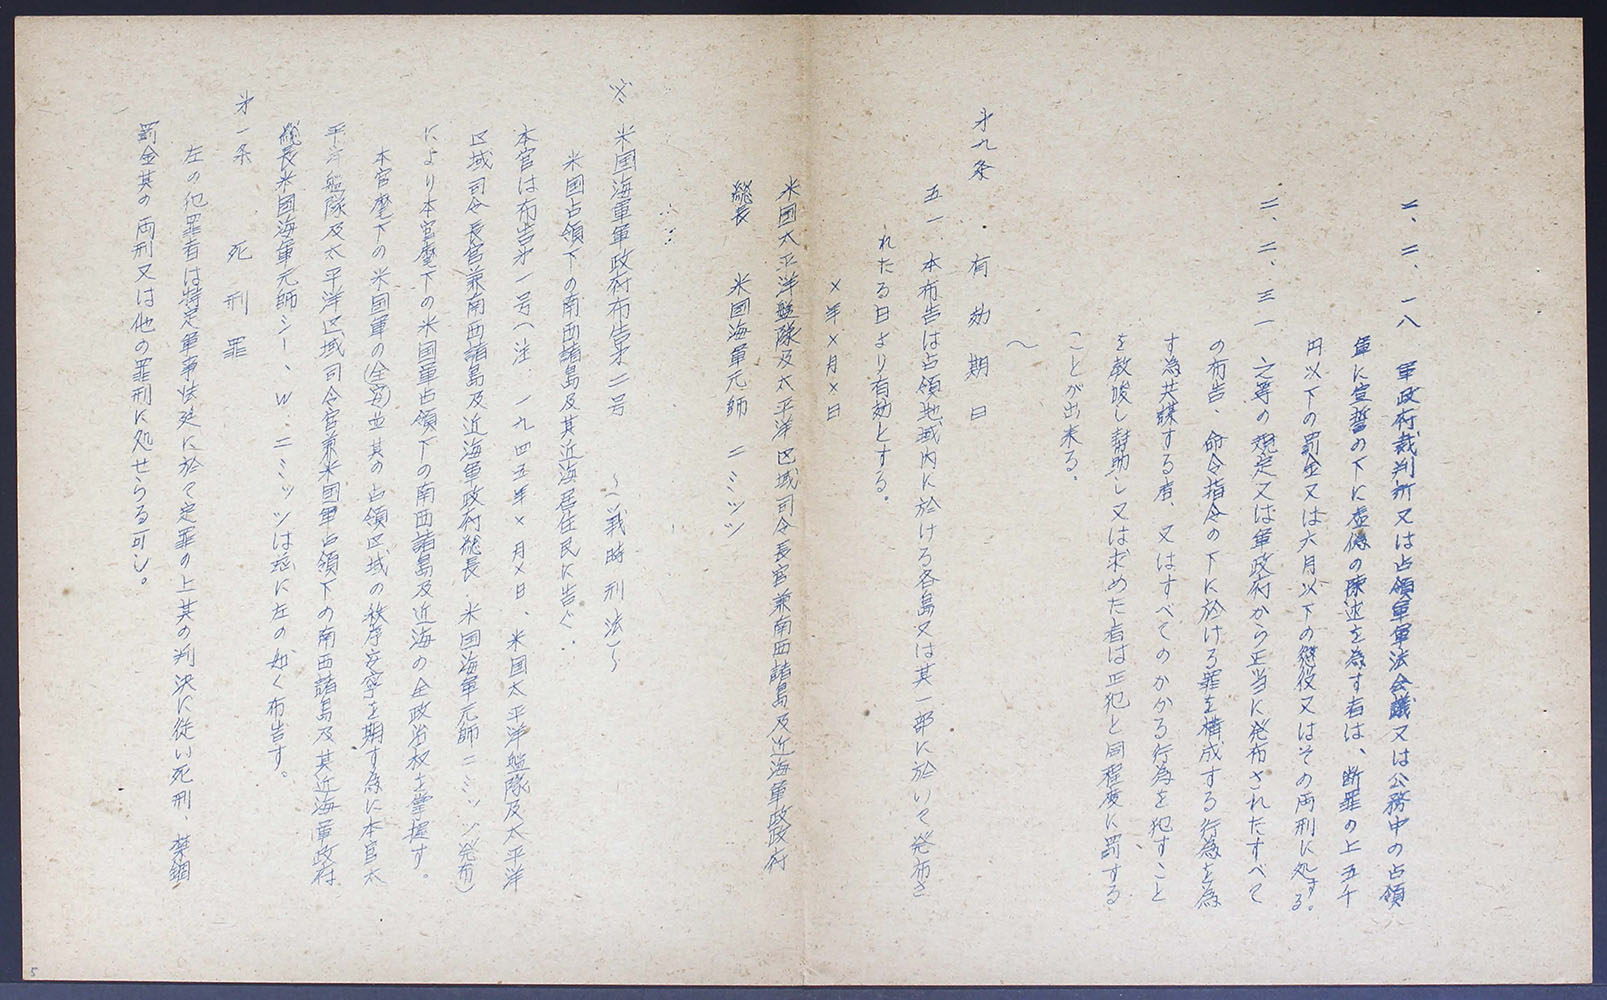 二、二、一八 軍政府裁判所又は占領軍軍法会議又は公務中の占領
軍に宣誓の下に虚偽の陳述を為す者は、断罪の上五千
円以下の罰金又は六月以下の懲役又はその両刑に処する。
二、二、三一 之等の規定又は軍政府から正当に発布されたすべて
の布告、命令指令の下に於ける罪を構成する行為を為
す為共謀する者、又はすべてのかかる行為を犯すこと
を教唆し幇助し又は求めた者は正犯と同程度に罰する
ことが出来る.
〜
才九条 . 有効期日
五一 . 本布告は占領地域内に於ける各島又は其一部に於いて発布さ
れたる日より有効とする.
×年×月×日
米国太平洋艦隊及太平洋区域司令長官兼南西諸島及近海軍政政府
総長 米国海軍元帥 ニミッツ
米国海軍軍政府布告才二号 〜(戦時刑法)〜
米国占領下の南西諸島及其近海居住民に告ぐ.
本官は布告才一号(注. 一九四五年×月×日、米国太平洋艦隊及太平洋
区域司令長官兼南西諸島及近海軍政府総長 . 米国海軍元帥ニミッツ発布)
により本官麾下の米国軍占領下の南西諸島及近海の全政治権を掌握す。
本官麾下の米国軍の(全?)並其の占領区域の秩序安寧を期す為に本官太
平洋艦隊及太平洋区域司令官兼米国軍占領下の南西諸島及其近海軍政府
総長米国海軍元帥シー、W.ニミッツは茲に左の如く布告す。
才一条 死刑罪
左の犯罪者は特定軍事法廷に於て定罪の上其の判決に従い死刑、禁錮
罰金其の両刑又は他の罪刑に処せらる可し。
5